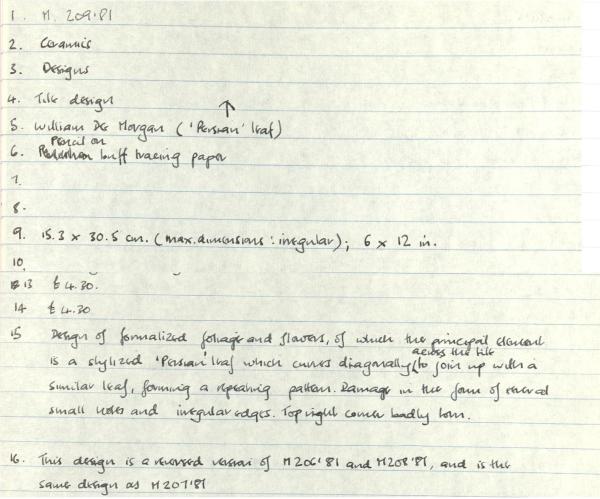 1. M. 209'81
2. Ceramics
3. Designs
4. Tile design
5. William De Morgan ('Persian' leaf)
6. Pencil on buff tracing paper
7.
8.
9. 15.3 x 30.5 cm. (max. dimensions: irregular); 6 x 12 in.
10.
13 £4.30.
14 £4.30
15 Design of formalized foliage and flowers, of which the principal element
is a stylized 'Persian' leaf which curves diagonally across the tile to join up with a
similar leaf, forming a repeating pattern. Damage in the form of several
small holes and irregular edges. Top right corner badly torn.
16. This design is a reversed version of M206'81 and M208'81, and is the
same design as M207'81